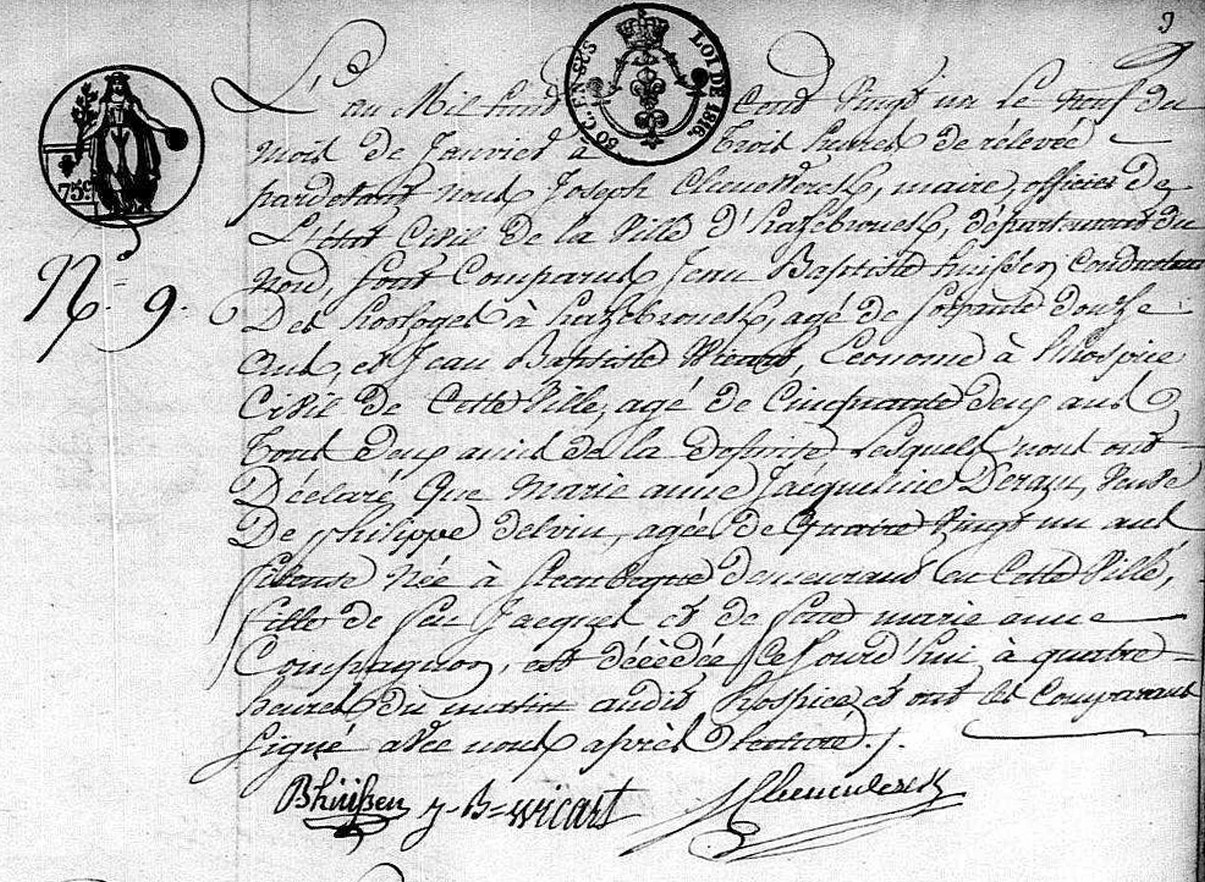 9
50 C. EN SUS
LOI DE 1816
75c
N.° 9.
L'an Mil huit Cent Vingt un Le neuf du
mois de Janvier à Trois heures de rélevée
pardevant nous Joseph maire, officier de
L'état Civil de la Ville d'hazebrouck, département du
Nord, sont Comparus Jean Baptiste huissen, Conducteur
Des horloges à hazebrouck, agé de soixante douze
ans, et Jean Baptiste Wicart, Econome à l'hospice
Civil de Cette Ville, agé de Cinquante deux ans
Tous deux amis de la défunte Lesquels nous ont
Déclaré Que Marie anne Jacqueline Deram, Veuve
De philippe Delvin, agée de Quatre Vingt un ans
fileuse Née à Steenbecque demeurant en Cette Ville,
fille de feu Jacques et de feue marie anne
Compagnon, est décèdée Cejourd'hui à quatre
heures du matin audit hospice, et ont les Comparans
Signé avec nous après lecture ./.
Bhüissen J-B-wicart